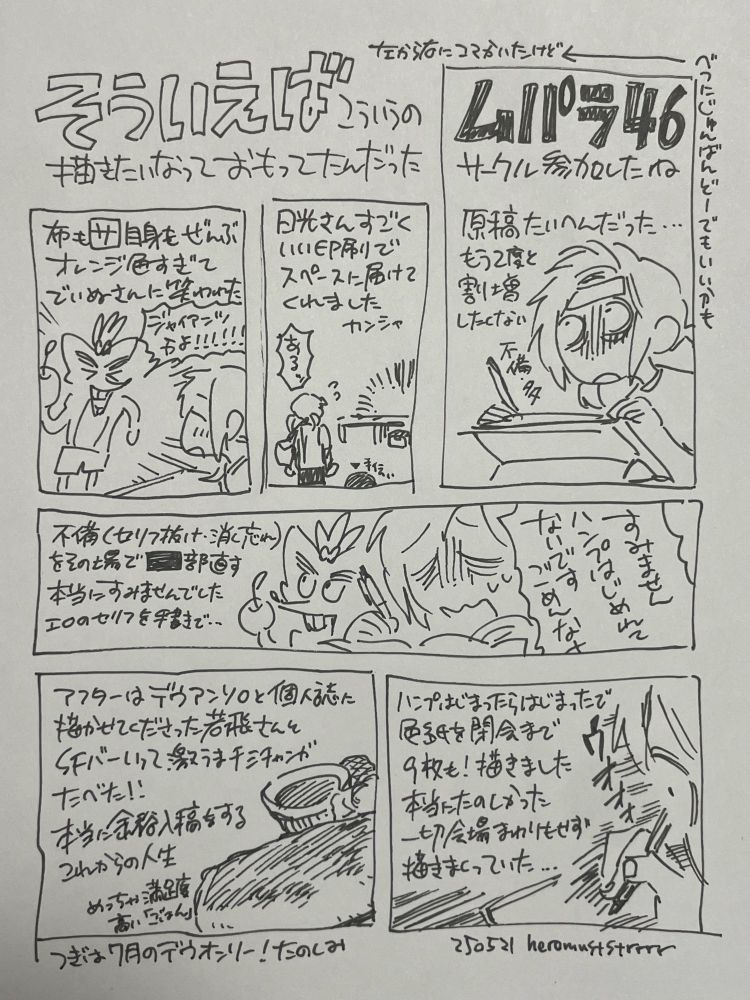 左から右にコマかいたけど
べつにじゅんばんどーでもいいかも
そういえば
こういうの
描きたいなっておもってたんだった
ムパラ46
サークル参加したね
原稿たいへんだった…
もう2度と
割り増
したくない
不備
日光さんすごく
いいEP刷りで
スペースに届けて
くれました
カンシャ
あるッ
布も サ 自身もぜんぶ
オレンジ色すぎて
でいぬさんに笑われた
ジャイアンツ
かよ!!!!!!
不備(セリフ抜け・消し忘れ)
をその場で 部直す
本当にすみませんでした
エロのセリフを手書きで..
すみません
ハンプはじめれて
ないです
ごめんなさ
ハンプはじまったらはじまったで
色紙を閉会まで
9枚も!描きました
本当にたのしかった
一切会場まわりもせず
描きまくっていた…
ウオオオ
アフターはデウアンソロと個人誌に
描かせてくださった若飛さんと
SFバーいって激うまチミチャンガ
たべた!!
本当に余裕入稿をする
これからの人生
めっちゃ満足度
高い「ごはん」
つぎは7月のデウオンリー!たのしみ
250521 heromuststrrrr